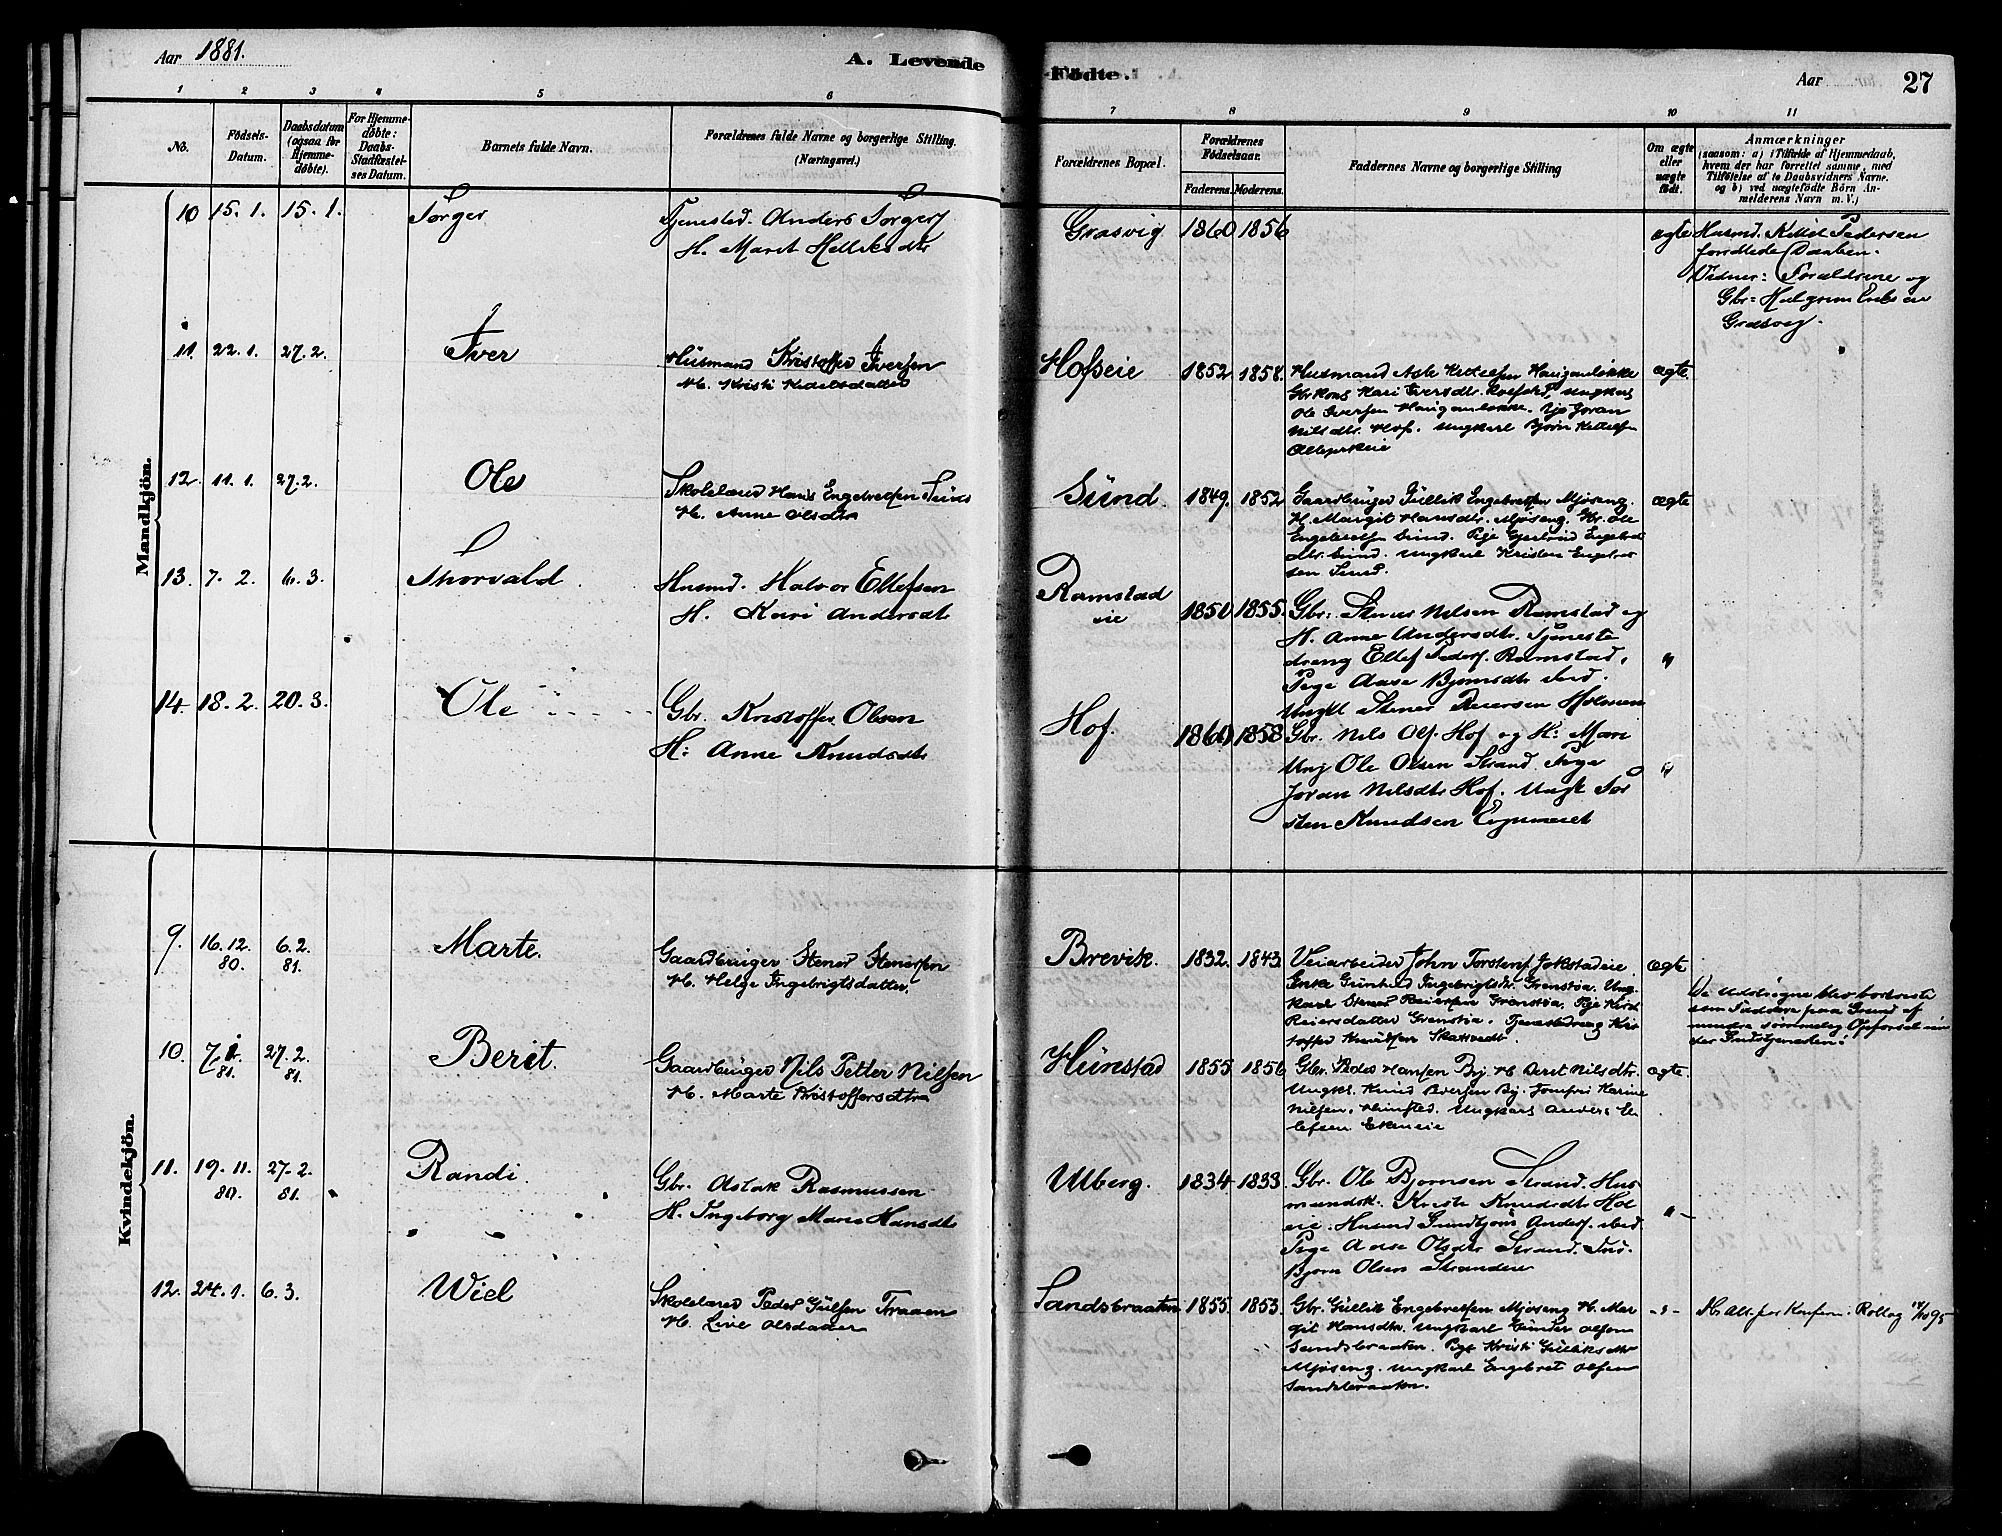 Aar 1881.
A. Levende
Födte.
Aar
27
1
2
3
4
5
6
7
8
9
10
11
No.
Födsels-
Datum.
Daabsdatum
(ogsaa for
Hjemme-
döbte).
For Hjemme-
döbte:
Daabs-
Stadfæstel-
ses Datum.
Barnets fulde Navn.
Forældrenes fulde Navne og borgerlige Stilling.
(Næringsvei.)
Forældrenes Bopæl.
Forældrenes
Födselsaar.
Faderens.
Moderens.
Faddernes Navne og borgerlige Stilling
Om ægte
eller
uægte
födt.
Anmærkninger
(saasom: a) i Tilfælde af Hjemmedaab,
hvem der har forrettet samme, med
Tilföielse af to Daabsvidners Navne.
og b) ved uægtefödte Börn An-
melderens Navn m. V.)
Mandkjön.
10 15. 1. 15. 1.
Torger
Tjenested. Anders Torgersf
H. Marit Helliksdtr
Grasvig
1860 1856
ægte
Husmd. Kittil Pedersen
forrettede Daaben.
Vidner: Forældrene og
Gbr: Halgrim Eriksen
Grasvig.
11. 22. 1. 27. 2.
Iver
Husmand Kristoffer Iversen
H. Kristi Kittelsdatter
Hofseie
1852 1858.
Husmand Asle Kittelsen Hauganløkke
Gbrkone Kari Iversdtr.
Ole Iversen Hauganløkke. Pige Joran
Nilsdtr. Hof. Ungkarl Bjørn Kittelsen
ægte.
12. 11. 1. 27. 2.
Ole
Skolelærer Hans Engebretsen Sund
H. Anne Olsdtr
Sund.
1849. 1852
Gaardbruger Gullik Engebretsen Mjøseng.
H. Margit Hansdtr. Mjøseng. Gbr. Ole
Engebretsen Sund. Pige Gjertrud Engebrets
dtr. Sund. Ungkarl Kristen Engebret
sen Sund.
ægte
13. 7. 2. 6. 3.
Thorvald
Husmd. Halvor Ellefsen
H. Kari Andersdt
Ramstad
eie
1850 1855.
Gbr: Stener Nilsen Ramstad og
H. Anne Andersdtr. Tjeneste
dreng Ellef Pedersf. Ramstad,
Pige Aase Bjørnsdtr ibid.
Ungkl Stener Reiersen Holmen
"
14. 18. 2. 20. 3.
Ole
Gbr. Kristoffer Olsen
H: Anne Knudsdtr
Hof.
1860 1858
Gbr. Nils Olsf. Hof og H: Mari
Ungk Ole Olsen Strand. Pige
Joran Nilsdtr Hof. Ungk Tor
sten Knudsen
"
Kvindekjön.
9. 16. 12. 80. 6. 2. 81.
Marte.
Gaardbruger Stener Stenersen
H. Helge Ingebrigtsdatter.
Brevik.
1832. 1843
Veiarbeider John Torstensf Jokstadeie
Enke Gunhild Ingebrigtsdtr. Grønstia. Ung-
karl Stener Reiersen Grønstia. Pige Kristi
Reiersdatter Grønstia. Tjenestedreng Kris
toffer Knudsen
ægte
De udstregne blev bortviste
som Faddere paa Grund af
mindre sømmelig Opførsel un-
der Gudstjenesten.
10. 7. 1. 81. 27. 2. 81.
Berit.
Gaardbruger Nils Petter Nilsen
H. Marte Kristoffersdtr
Hunstad
1855 1856
Gbr. Peder Hansen By. H. Berit Nilsdtr.
Ungkl. Knud Iversen By. Jomfru Karine
Nilsen, Hunsted. Ungkarl Anders El-
lefsen Ekeneie
ægte.
11. 19. 11. 80. 27. 2. 81.
Randi.
Gbr. Aslak Rasmussen
H. Ingeborg Marie Hansdtr
Ulberg.
1834 1833.
Gbr. Ole Bjørnsen Strand. Hus
mandsk. Kristi Knudsdt Hol
eie. Husmd Gundbjørn Andersf. ibid
Pige Aase Olsdtr Strand.
Bjørn Olsen Strandeie
"
12. 24. 1. 6. 3.
Wiel
Skolelærer Peder Gulsen Traaen
H. Live Olsdatter
Sandsbraaten
1855. 1853.
Gbr. Gullik Engebretsen Mjøseng H. Mar
git Hansdtr. Ungkarl Gunder Olsen
Sandsbraaten. Pige Kristi Gulliksdtr
Mjøseng. Ungkarl Engebret Olsen
Sandsbraaten.
-"-
Nr. Att. for Konfirm. Rollag